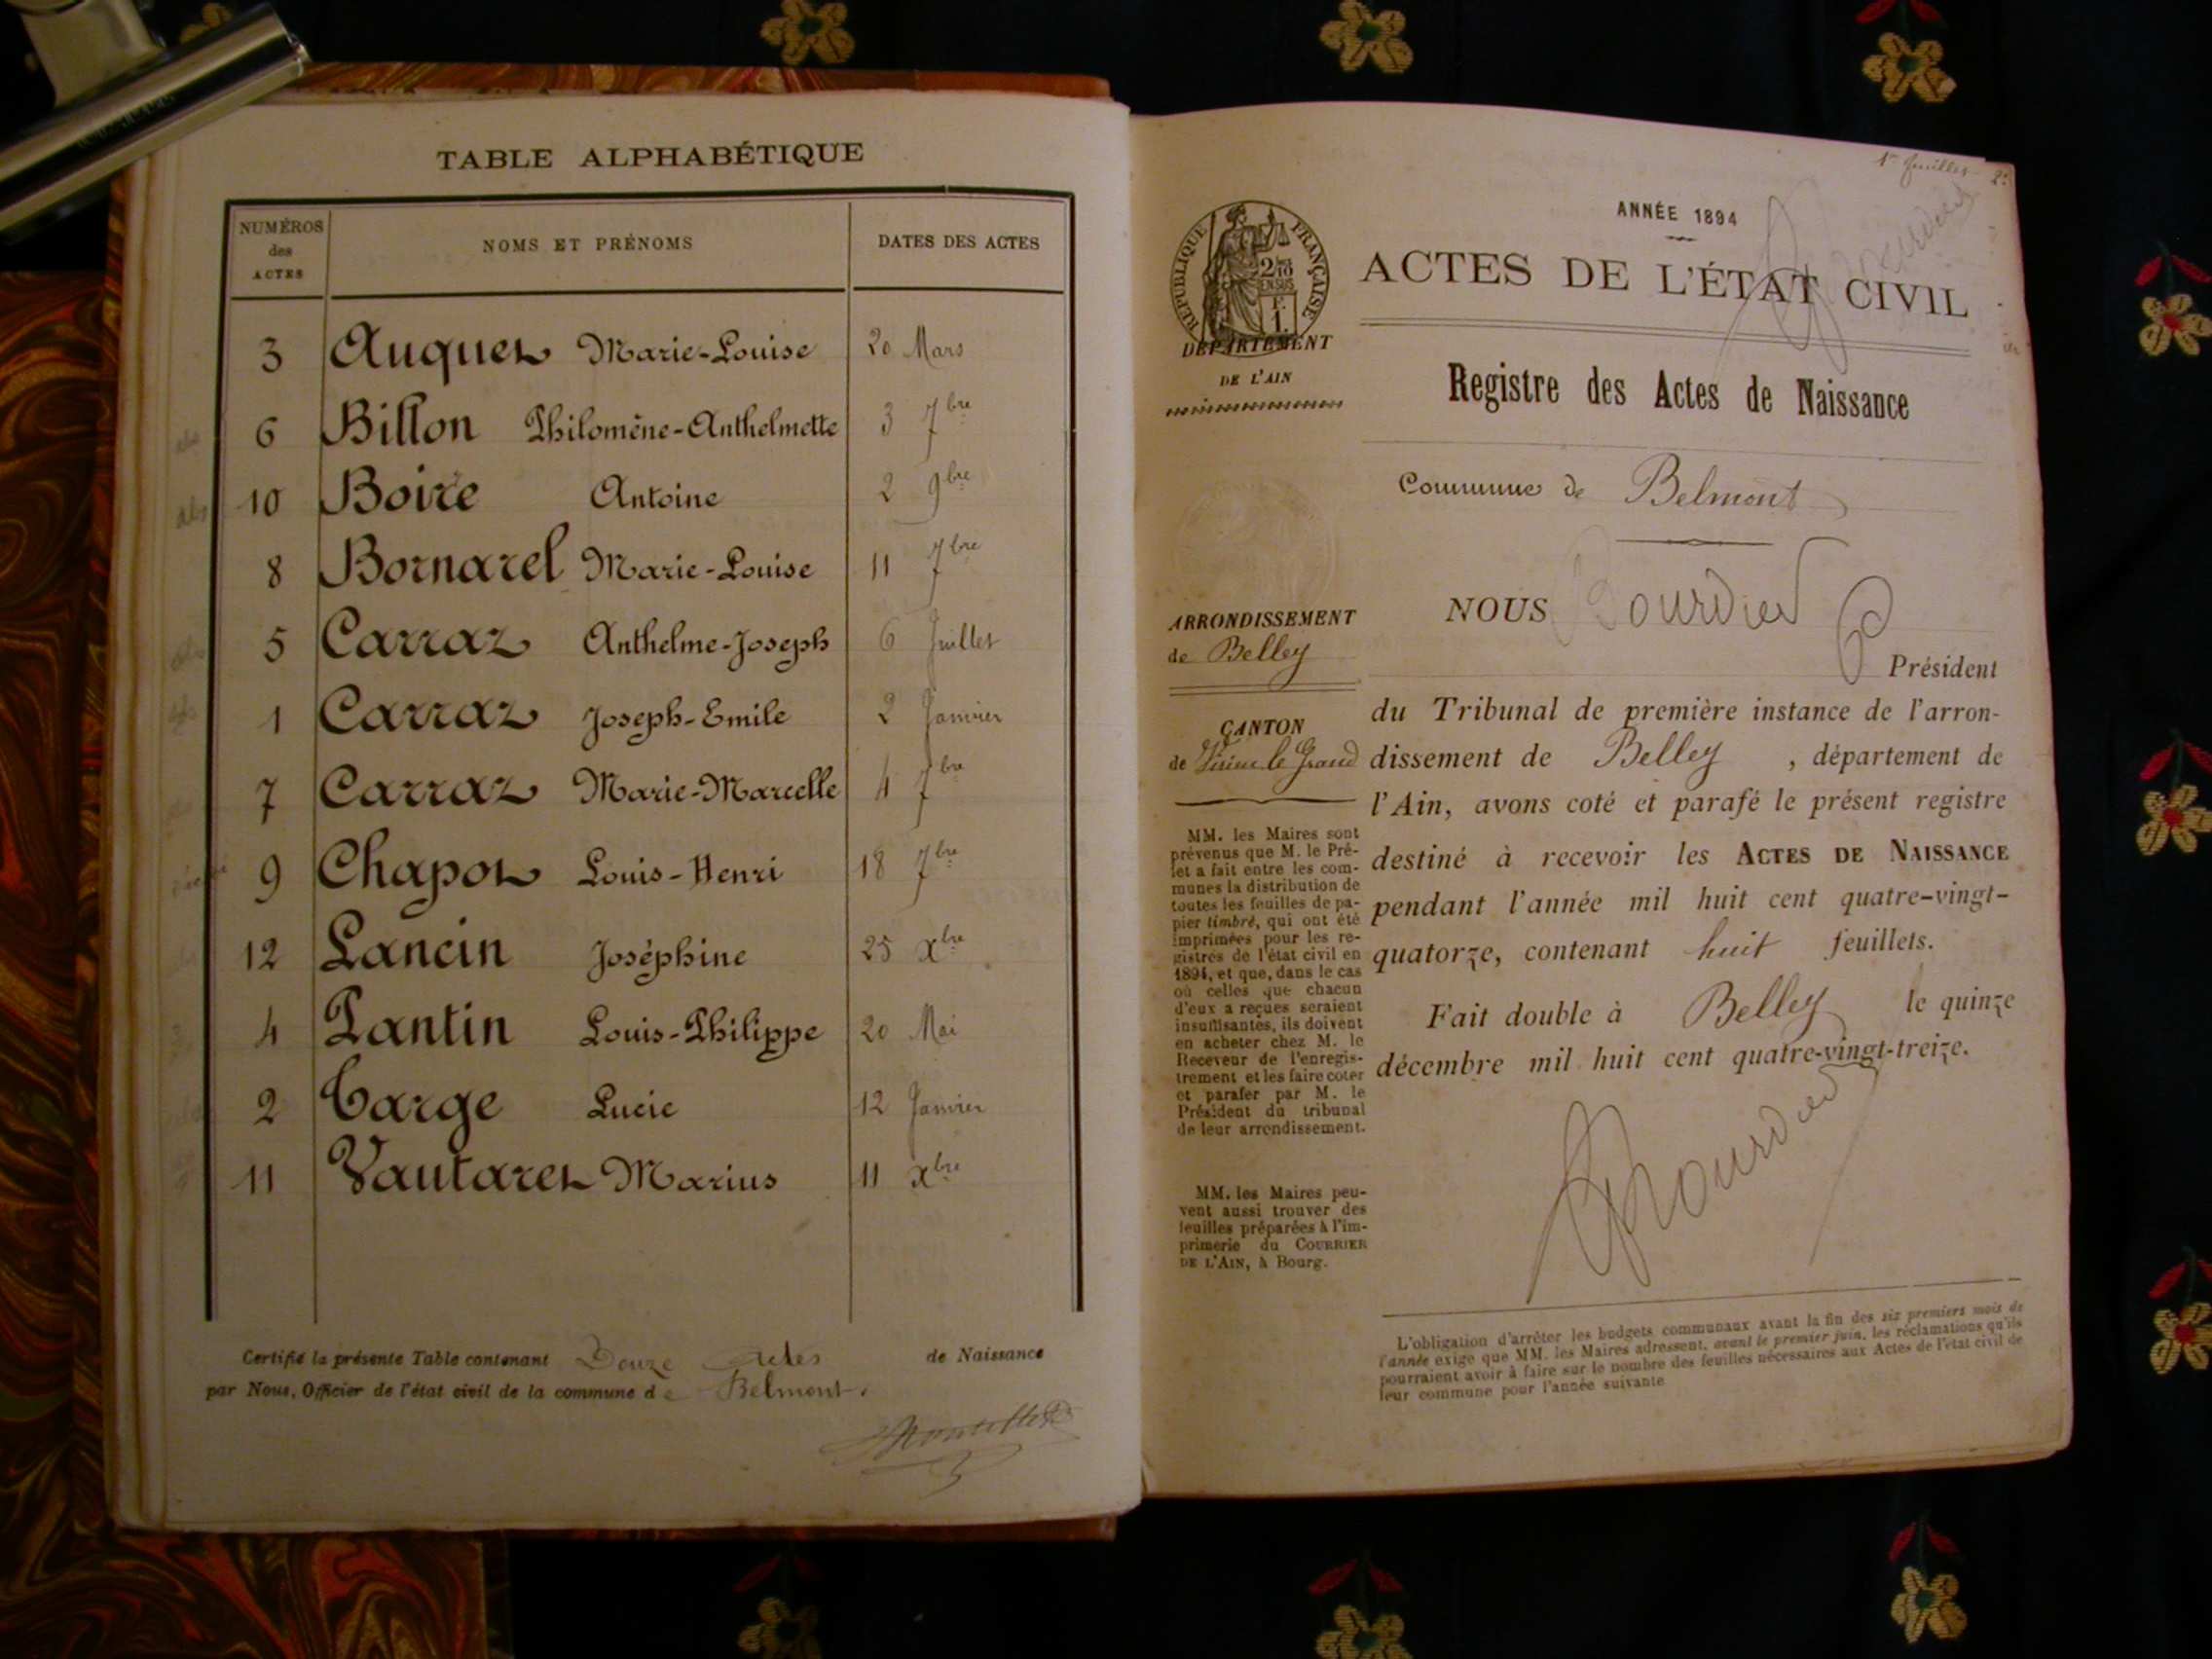 TABLE ALPHABÉTIQUE
NUMÉROS des ACTES NOMS ET PRÉNOMS DATES DES ACTES
3 Auquer Marie-Louise 20 Mars
6 Billon Philomène-Anthelmette 3 7bre
10 Boire Antoine 2 9bre
8 Bornarel Marie-Louise 11 7bre
5 Carraz Anthelme-Joseph 6 Juillet
1 Carraz Joseph-Emile 2 Janvier
7 Carraz Marie-Marcelle 4 7bre
9 Chapot Louis-Henri 18 7bre
12 Lancin Joséphine 25 Xbre
4 Pantin Louis-Philippe 20 Mai
2 Targe Lucie 12 Janvier
11 Vautaret Marius 11 Xbre
Certifié la présente Table contenant Douze Actes de Naissance
par Nous, Officier de l'état civil de la commune de Belmont.
1er feuillet
ANNÉE 1894
ACTES DE L'ÉTAT CIVIL
RÉPUBLIQUE FRANÇAISE
DÉPARTEMENT
DE L'AIN
Registre des Actes de Naissance
Commune de Belmont
NOUS Bourdier
Président
ARRONDISSEMENT
de Belley
CANTON
de Virieu le Grand
du Tribunal de première instance de l'arron-
dissement de Belley, département de
l'Ain, avons coté et parafé le présent registre
destiné à recevoir les ACTES DE NAISSANCE
pendant l'année mil huit cent quatre-vingt-
quatorze, contenant huit feuillets.
Fait double à Belley le quinze
décembre mil huit cent quatre-vingt-treize.
Bourdier
MM. les Maires sont
prévenus que M. le Pré-
fet a fait entre les com-
munes la distribution de
toutes les feuilles de pa-
pier timbré, qui ont été
imprimées pour les re-
gistres de l'état civil en
1894, et que, dans le cas
où celles que chacun
d'eux a reçues seraient
insuffisantes, ils doivent
en acheter chez M. le
Receveur de l'enregis-
trement et les faire coter
et parafer par M. le
Président du tribunal
de leur arrondissement.
MM. les Maires peu-
vent aussi trouver des
feuilles préparées à l'im-
primerie du COURRIER
DE L'AIN, à Bourg.
L'obligation d'arrêter les budgets communaux avant la fin des six premiers mois de
l'année exige que MM. les Maires adressent, avant le premier juin, les réclamations qu'ils
pourraient avoir à faire sur le nombre des feuilles nécessaires aux Actes de l'état civil de
leur commune pour l'année suivante